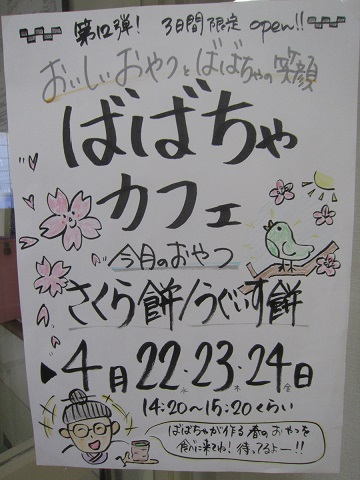 第12弾! 3日間限定 open!!
おいしいおやつとばばちゃの笑顔
ばばちゃ
カフェ
今月のおやつ
さくら餅/うぐいす餅
▶4月22・23・24日
水 木 金
14:20~15:20くらい
ばばちゃが作る春のおやつを
食べに来てね!待ってるよー!!